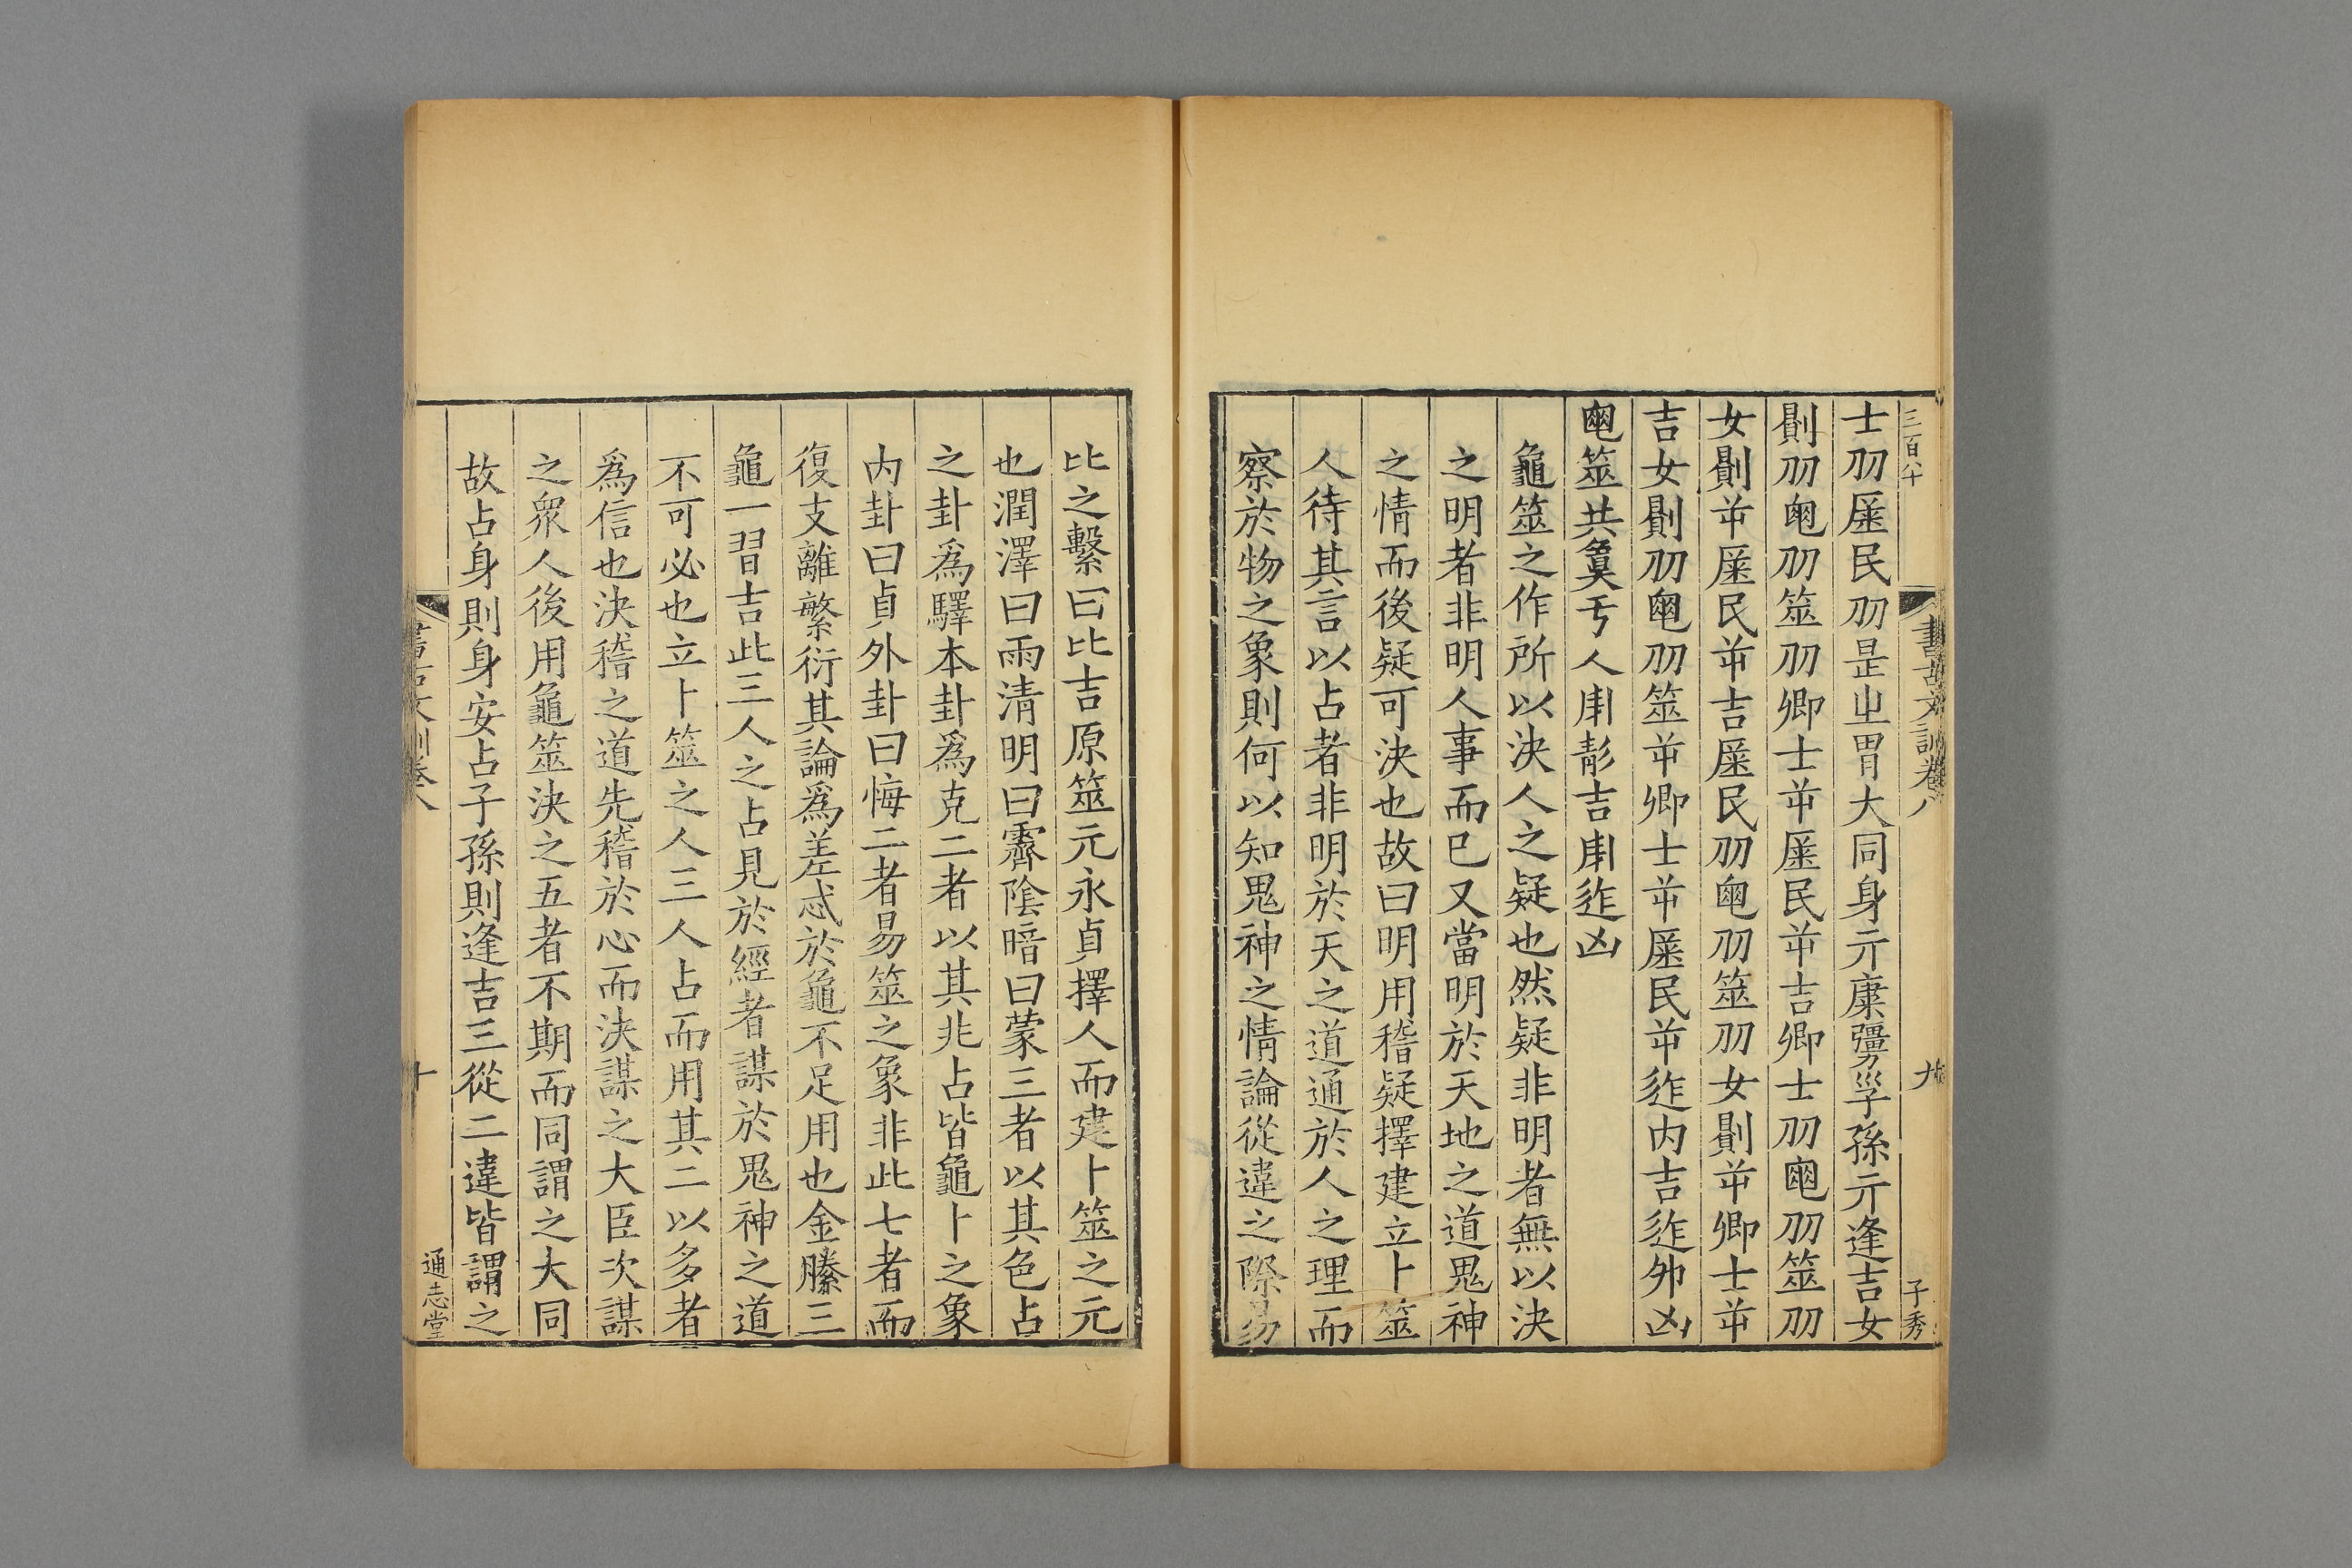 三百八十
書古文訓卷八
九
子秀
士刕屖民刕昰㞢胃大同身亓康彊孖孫亓逢吉女
䠶刕龟刕筮刕卿士芇屖民芇吉卿士刕龟刕筮刕
女䠶芇屖民芇吉屖民刕龟刕筮刕女䠶芇卿士芇
吉女䠶刕龟刕筮芇卿士芇屖民芇迮内吉迮外凶
龟筮共亐人用吉用迮凶
龜筮之作所以決人之疑也然疑非明者無以決
之明者非明人事而已又當明於天地之道鬼神
之情而後疑可決也故曰明用稽疑擇建立卜筮
人待其言以占者非明於天之道通於人之理而
察於物之象則何以知鬼神之情論從違之際易
比之繫曰比吉原筮元永貞擇人而建卜筮之元
也潤澤曰雨清明曰霽陰暗曰蒙三者以其色占
之卦爲驛本卦爲克二者以其兆占皆龜卜之象
内卦曰貞外卦曰悔二者易筮之象非此七者而
復支離繁衍其論爲差忒於龜不足用也金縢三
龜一習吉此三人之占見於經者謀於鬼神之道
不可必也立卜筮之人三人占而用其二以多者
爲信也決稽之道先稽於心而決謀之大臣次謀
之衆人後用龜筮決之五者不期而同謂之大同
故占身則身安占子孫則逢吉三從二違皆謂之
十
通志堂